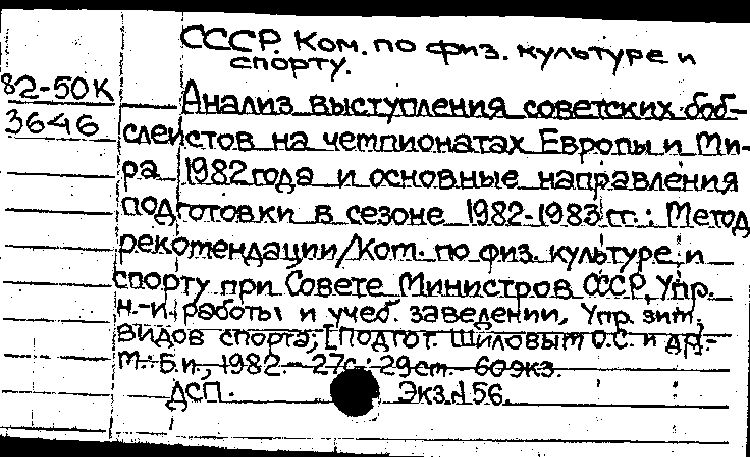 СССР. Ком. по физ. культуре и
спорту.
82-50К
3646
Анализ выступления советских боб-
слеистов на чемпионатах Европы и Ми-
ра 1982 года и основные направления
подготовки в сезоне 1982-1983 гг.: Метод
рекомендации/Ком. по физ. культуре и
спорту при Совете Министров СССР, Упр.
н.-и. работы и учеб. заведении, Упр. зим.
видов спорта; [Подгот. Шиловым О.С. и др.-
М.: Б.и., 1982.- 27с.; 29 см. - 60 экз.
ДСП. Экз.№56.